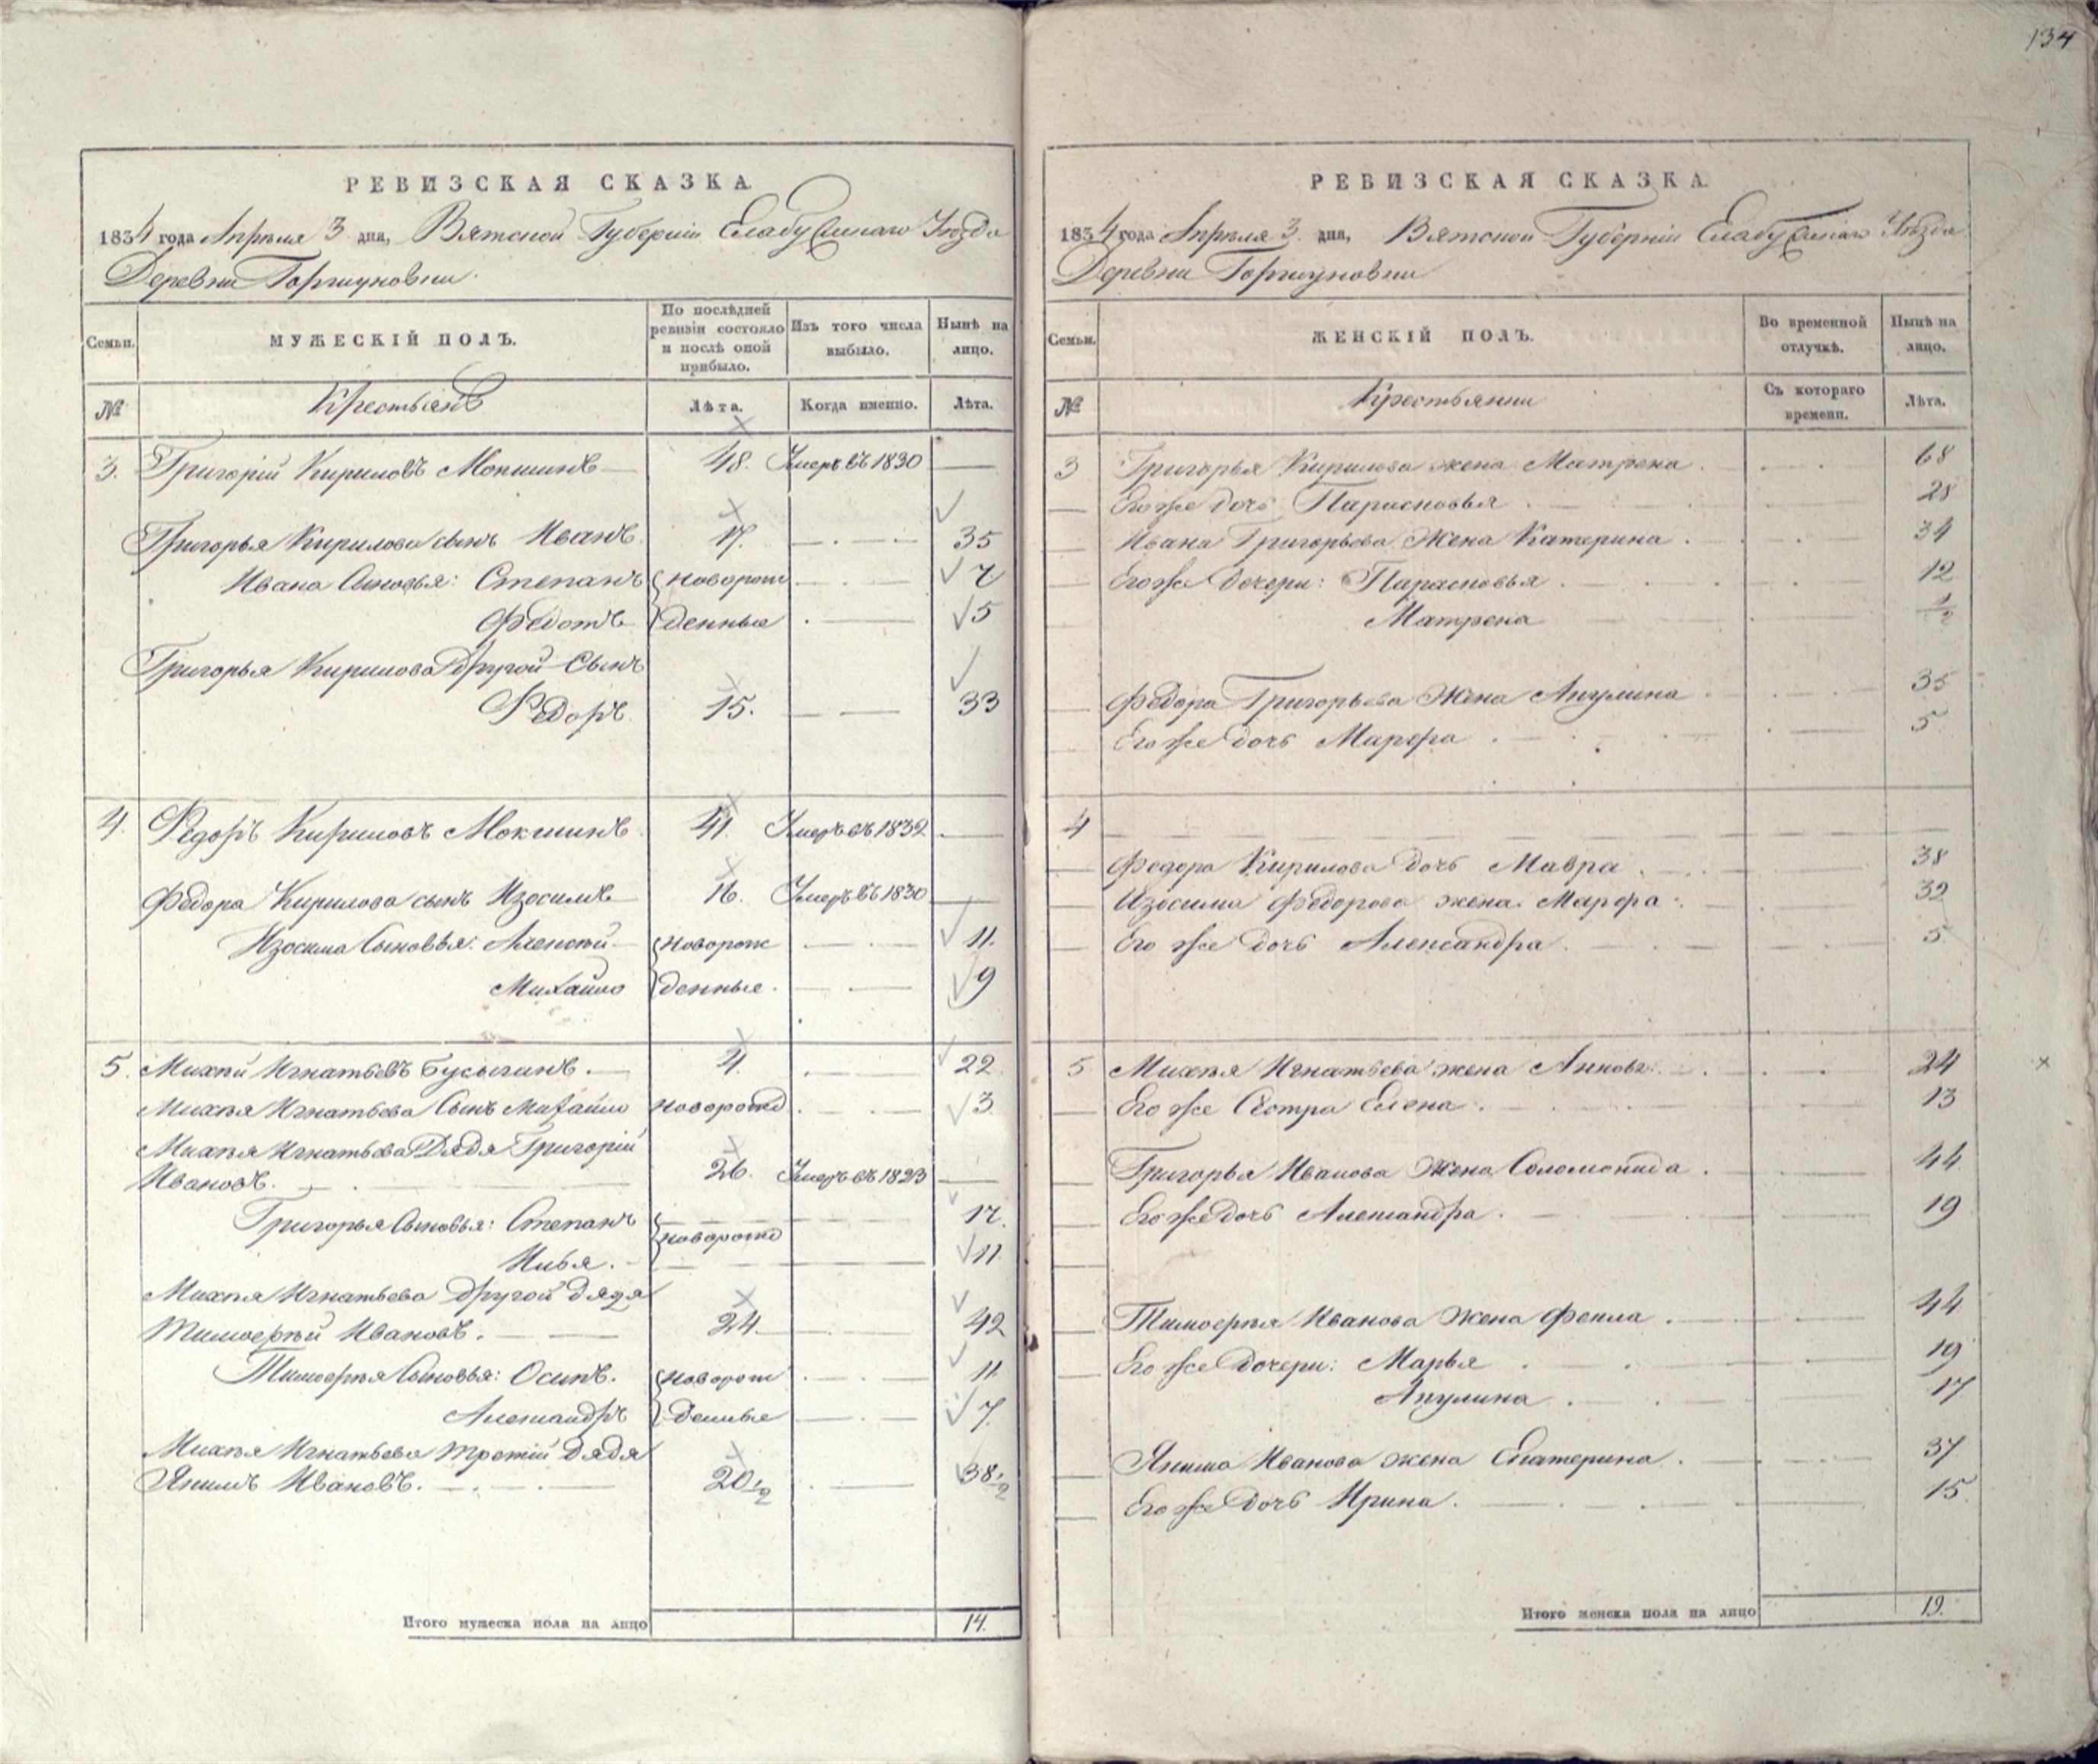 134
РЕВИЗСКАЯ СКАЗКА.
1834 года Апреля 3 дня, Вятской Губернии Елабужскаго Уезда
Деревни
Семьи.
МУЖЕСКІЙ ПОЛЪ.
По послѣдней ревизіи состояло и послѣ оной прибыло.
Изъ того числа выбыло.
Нынѣ на лицо.
№
Крестьянъ
Лѣта.
Когда именно.
Лѣта.
3. Григорій Кириловъ Мокшинъ 48. Умеръ въ 1830
Григорья Кирилова сынъ Иванъ 17. 35
Ивана Сыновья: Степанъ новорож 7
Федотъ денные 5
Григорья Кирилова другой Сынъ
Федоръ 15. 33
4. Федоръ Кириловъ Мокшинъ 41. Умеръ въ 1832
Федора Кирилова сынъ Изосимъ 16. Умеръ въ 1830
Изосима Сыновья: Алексѣй новорож 11.
Михайло денные. 9
5. Михѣй Игнатьевъ Бусыгинъ. 4. 22
Михѣя Игнатьева Сынъ Михайло новорожд 3
Михѣя Игнатьева Дядя Григорій
Ивановъ. 26. Умеръ въ 1823
Григорья Сыновья: Степанъ 17.
новорожд
Илья. 11
Михѣя Игнатьева другой дядя
Тимоѳѣй Ивановъ. 24. 42
Тимоѳѣя Сыновья: Осипъ. новорож 11
Александръ денные 7
Михѣя Игнатьева третій дядя
Якимъ Ивановъ. 20 1/2 38 1/2
Итого мужеска пола на лицо 14.
РЕВИЗСКАЯ СКАЗКА.
1834 года Апрѣля 3 дня, Вятской Губерніи Елабужскаго Уѣзда
Деревни
Семьи.
ЖЕНСКІЙ ПОЛЪ.
Во временной отлучкѣ.
Нынѣ на лицо.
№
Крестьянки
Съ котораго времени.
Лѣта.
3 Григорья Кирилова жена Матрена. 68
Его же дочь Парасковья 28
Ивана Григорьева Жена Катерина. 34
Его же дочери: Парасковья. 12
Матрена 1/2
Федора Григорьева Жена Акулина 35
Его же дочь Марфа. 5
4
Федора Кирилова дочь Мавра 38
Изосима Федорова жена Марфа. 32
Его же дочь Александра. 5
5 Михѣя Игнатьева жена Анна 24
Его же Сестра Елена. 13
Григорья Иванова Жена Соломонида. 44
Его же дочь Александра. 19
Тимоѳѣя Иванова Жена Фекла. 44
Его же дочери: Марья 19
Акулина. 17
Якима Иванова жена Екатерина. 37
Его же дочь Ирина. 15
Итого женска пола на лицо 19.